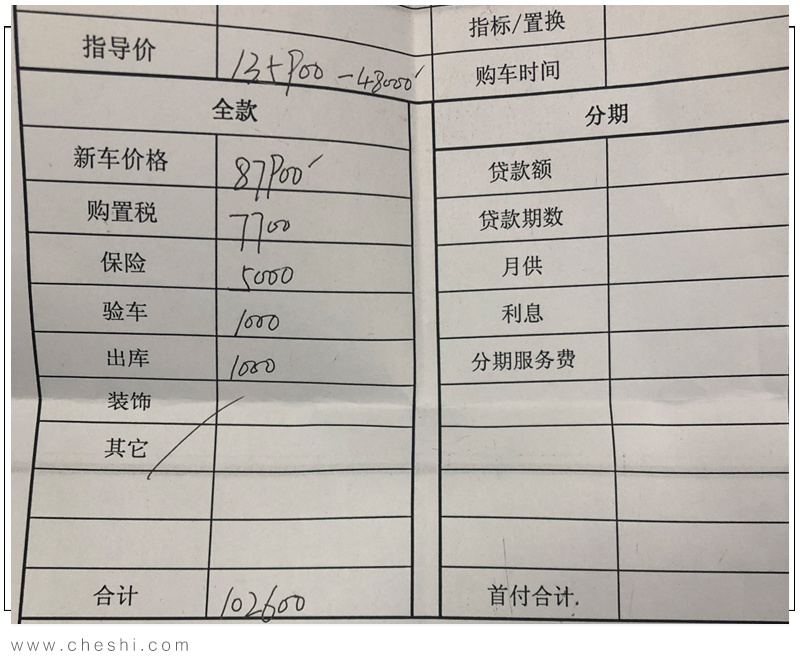 指导价 135900 -48000
全款
新车价格 87900
购置税 7700
保险 5000
验车 1000
出库 1000
装饰
其它
合计 102600
指标/置换
购车时间
分期
贷款额
贷款期数
月供
利息
分期服务费
首付合计
www.cheshi.com